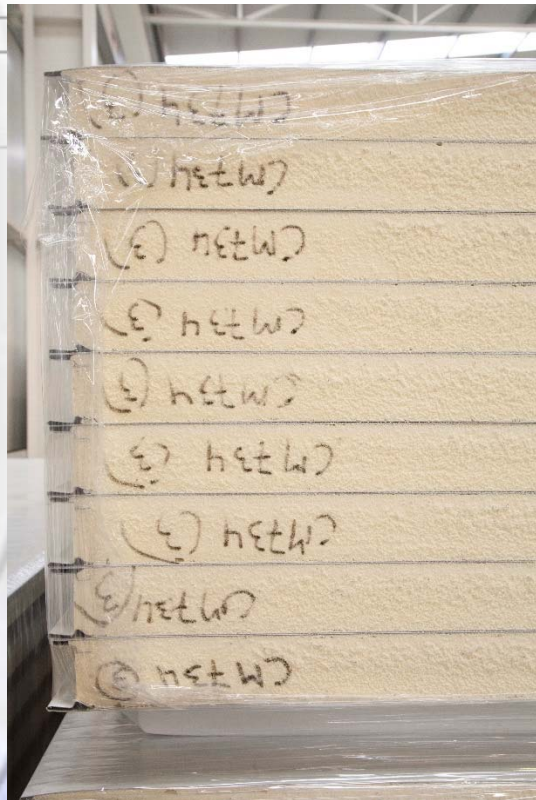 CM734 (3)
CM734 (3)
CM734 (3)
CM734 (3)
CM734 (3)
CM734 (3)
CM734 (3)
CM734
CM734 (3)